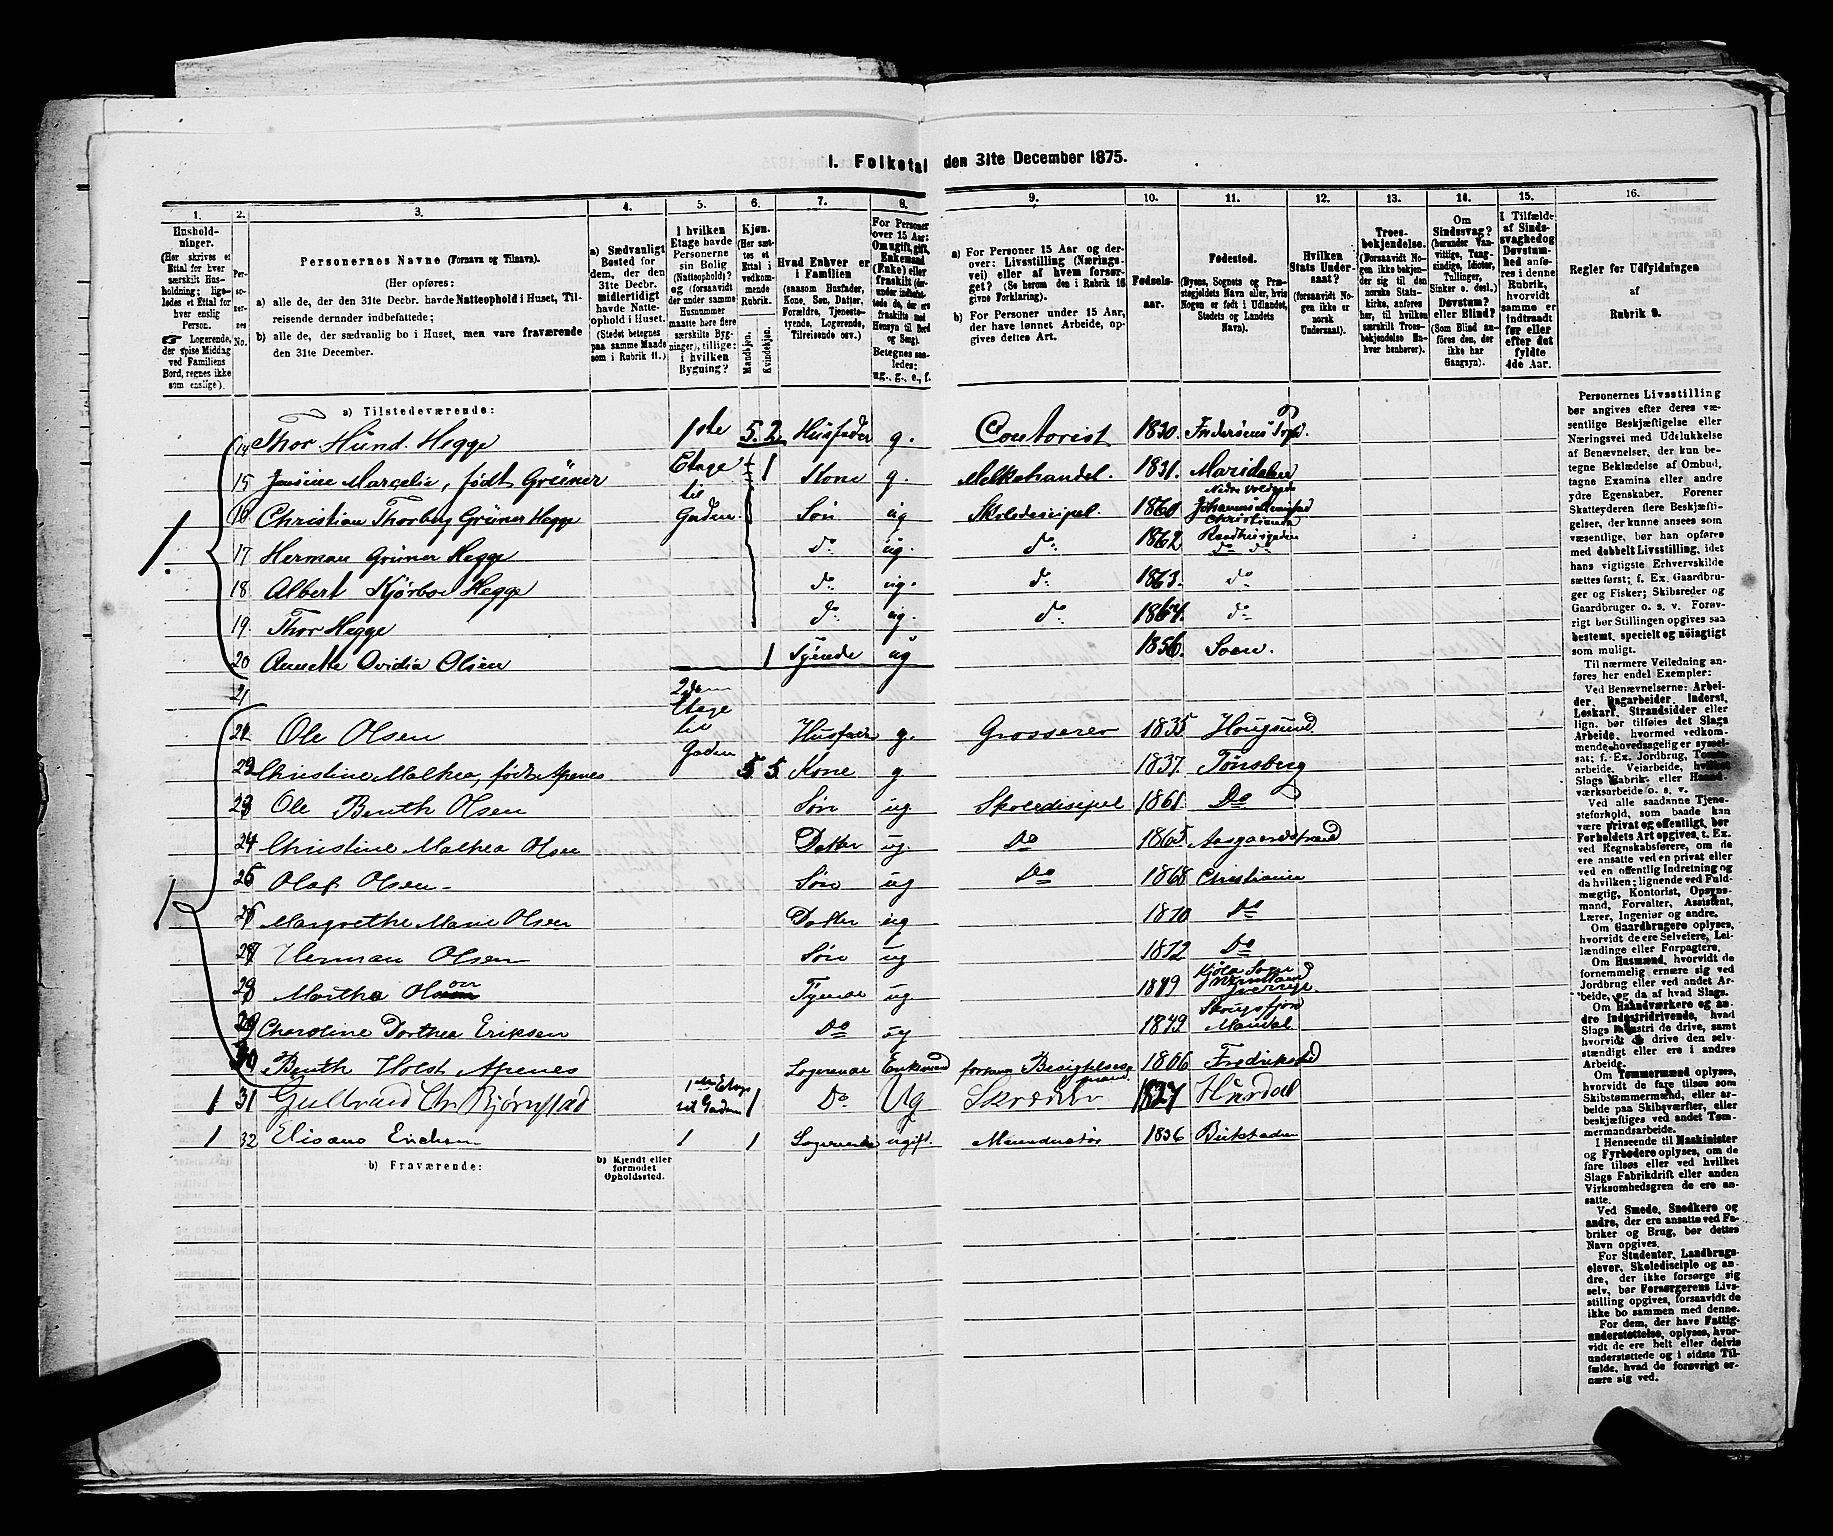 I. Folketal den 31te December 1875.
1. 2. 3. 4. 5. 6. 7. 8. 9. 10. 11. 12. 13. 14. 15. 16.
Husholdninger.
(Her skrives et Ettal for hver særskilt Husholdning; ligeledes et Ettal for hver enslig Person.
☞ Logerende, der spise Middag ved Familiens Bord, regnes ikke som enslige).
Personernes No.
Personernes Navne (Fornavn og Tilnavn).
(Her opføres:
a) alle de, der den 31te Decbr. havde Natteophold i Huset, Tilreisende derunder indbefattede;
b) alle de, der sædvanlig bo i Huset, men vare fraværende den 31te December.
a) Sædvanligt Bosted for dem, der den 31te Decbr. midlertidigt havde Natteophold i Huset. (Stedet betegnes paa samme Maade som i Rubrik 11.)
I hvilken Etage havde Personerne sin Bolig (Natteophold)? (forsaavidt der under samme Husnummer maatte høre flere særskilte Bygninger), tillige: i hvilken Bygning?
Kjøn. (Her sættes et Ettal i vedkommende Rubrik.
Mandkjøn.
Kvindekjøn.
Hvad Enhver er i Familien
(saasom Husfader, Kone, Søn, Datter, Forældre, Tjenestetyende, Logerende, Tilreisende osv.)
For Personer over 15 Aar: Om ugift, gift, Enkemand (Enke) eller fraskilt
Betegnes saaledes: ug., g., e., f.
a) For Personer 15 Aar og derover: Livsstilling (Næringsvei) eller af hvem forsørget? (Se herom den i Rubrik 16 givne Forklaring).
b) For Personer under 15 Aar, der have lønnet Arbeide, opgives dettes Art.
Fødselsaar.
Fødested.
(Byens, Sognets og Præstegjeldets Navn eller, hvis Nogen er født i Udlandet, Stedets og Landets Navn).
Hvilken Stats Undersaat?
(forsaavidt Nogen ikke er norsk Undersaat).
Troesbekjendelse. (Forsaavidt Nogen ikke bekjender sig til den norske Statskirke, anføres her, til hvilken særskilt Troesbekjendelse Enhver henhører).
Om Sindssvag? (herunder Vanvittige, Tungsindige, Idioter, Tullinger, Sinker o. desl.) Døvstum? eller Blind? (Som Blind anføres den, der ikke har Gangsyn).
I Tilfælde af Sindssvaghed og Døvstumhed anføres i denne Rubrik, hvorvidt samme er indtraadt før eller efter det fyldte 4de Aar.
Regler for Udfyldningen af Rubrik 9.
a) Tilstedeværende:
14 Thor Hund. Hegge 1ste 5. 2. Husfader g. Contorist 1830.
15 Marcelia, født Grüner Etage 1 Kone g. Melkehandel. 1831. Maridalen
16 Christian Thorberg Grüner Hegge til Gaden. Søn ug Skoledisipel. 1860 Nedre Voldgade Christiania
17 Herman Grüner Hegge do ug. do 1862 Raadhusgaden do do
18 Albert Kjørboe Hegge do ug. do 1863. do
19. Thor Hegge do ug. do 1864. do
20 Annette Ovidia Olsen 1 Tyende ug 1856. Soon.
21 2den Etage
21 Ole Olsen til Husfader g. Grosserer 1835 Hougsund
22 Christine Mathea, født Apenes Gaden 5. 5. Kone g 1837. Tønsberg
23 Ole Benth Olsen Søn ug Skoledisipel 1861 Do
24 Christine Mathea Olsen Datter ug. Do 1865 Aasgaardstrand
25 Olaf Olsen Søn ug Do 1868 Christiania
26 Margrethe Marie Olsen Datter ug 1870 Do
27 Herman Olsen Søn ug 1872 Do
28 Martha Tyende ug. 1849
29 Charoline Dorthea Eriksen Do ug 1849 Mandal
30 Benth Holst Apenes Logerende Enkemand 1806 Fredrikstad
1 31 Gulbrand Chr Bjørnstad 1ste Etage til Gaden 1 Do Ug Skrædder 1827 Hurdal
1 32 1 1 Logerende ugift. 1836
b) Fraværende:
b) Kjendt eller formodet Opholdssted.
Personernes Livsstilling bør angives efter deres væsentlige Beskjæftigelse eller Næringsvei med Udelukkelse af Benævnelser, der kun betegne Beklædelse af Ombud, tagne Examina eller andre ydre Egenskaber. Forener Skatteyderen flere Beskjæftigelser, der kunne ansees som væsentlige, bør han opføres med dobbelt Livsstilling, idet hans vigtigste Erhvervskilde sættes først; f. Ex. Gaardbruger og Fisker; Skibsreder og Gaardbruger o. s. v. Forøvrigt bør Stillingen opgives saa bestemt, specielt og nøiagtigt som muligt.
Til nærmere Veiledning anføres her endel Exempler:
Ved Benævnelserne: Arbeider, Dagarbeider, Inderst, Løskarl, Strandsidder eller lign. bør tilføies det Slags Arbeide, hvormed vedkommende hovedsagelig er sysselsat; f. Ex. Jordbrug, Tomtearbeide, Veiarbeide, hvilket Slags Fabrik- eller Haandværksarbeide o. s. v.
Ved alle saadanne Tjenesteforhold, som baade kan være privat og offentligt, bør Forholdets Art opgives, t. Ex. ved Regnskabsførere, om de ere ansatte ved en privat eller ved en offentlig Indretning og da hvilken; lignende ved Fuldmægtig, Kontorist, Opsynsmand, Forvalter, Assistent, Lærer, Ingeniør og andre.
Om Gaardbrugere oplyses, hvorvidt de ere Selveiere, Leilændinge eller Forpagtere.
Om Husmænd, hvorvidt de fornemmelig ernære sig ved Jordbrug eller ved andet Arbeide, og da af hvad Slags.
Om Haandværkere og andre Industridrivende, hvad Slags Industri de drive, samt hvorvidt de drive den selvstændigt eller ere i andres Arbeide.
Om Tømmermænd oplyses, hvorvidt de fare tilsøs som Skibstømmermænd, eller arbeide paa Skibsværfter, eller beskjæftiges ved andet Tømmermandsarbeide.
I Henseende til Maskinister og Fyrbødere oplyses, om de fare tilsøs eller ved hvilket Slags Fabrikdrift eller anden Virksomhedsgren de ere ansatte.
Ved Smede, Snedkere og andre, der ere ansatte ved Fabriker og Brug, bør dettes Navn opgives.
For Studenter, Landbrugselever, Skoledisciple og andre, der ikke forsørge sig selv, bør Forsørgerens Livsstilling opgives, forsaavidt de ikke bo sammen med denne.
For dem, der have Fattigunderstøttelse, oplyses, hvorvidt de ere helt eller delvis understøttede og i sidste Tilfælde, hvad de forøvrigt ernære sig ved.